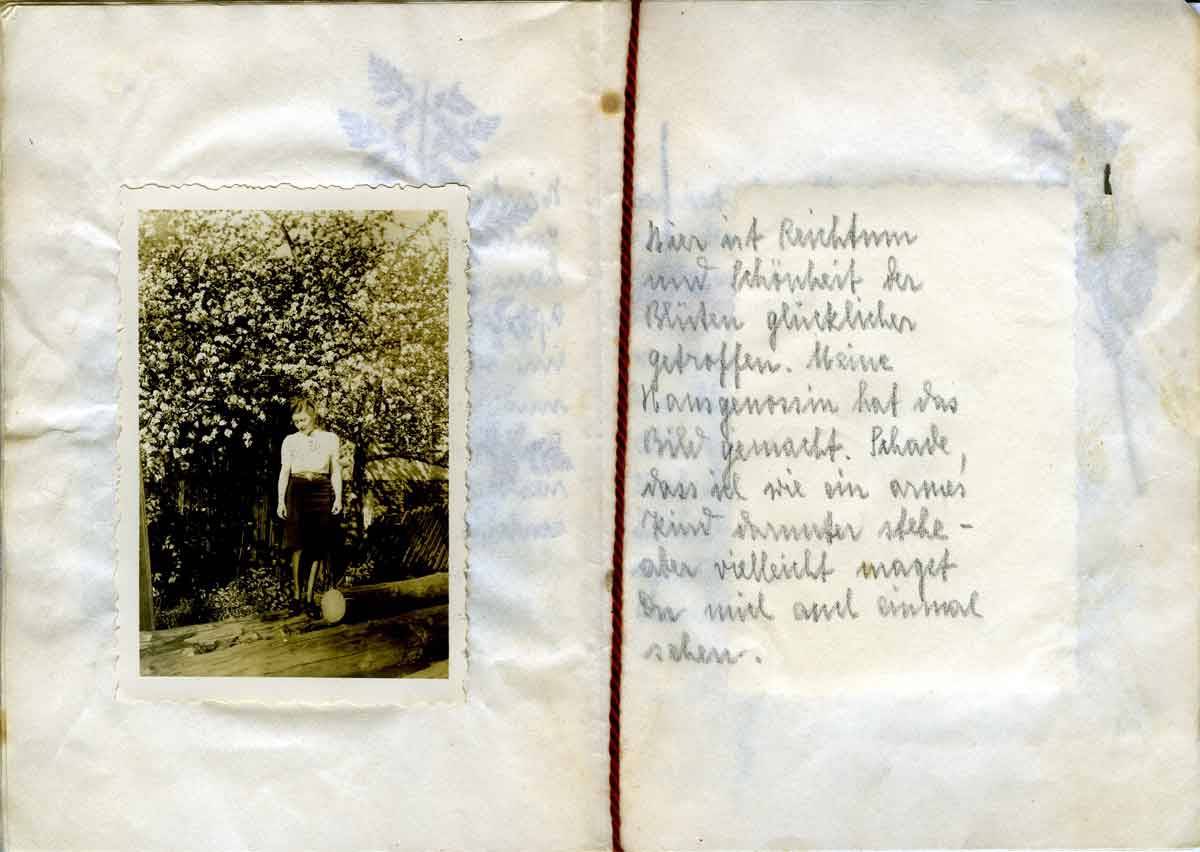 Hier ist Reichtum
und Schönheit der
Blüten glücklicher
getroffen. Meine
Hausgenossin hat das
Bild gemacht. Schade,
dass ich wie ein armes
Kind darunter stehe –
aber vielleicht magst
Du mich auch einmal
sehen.